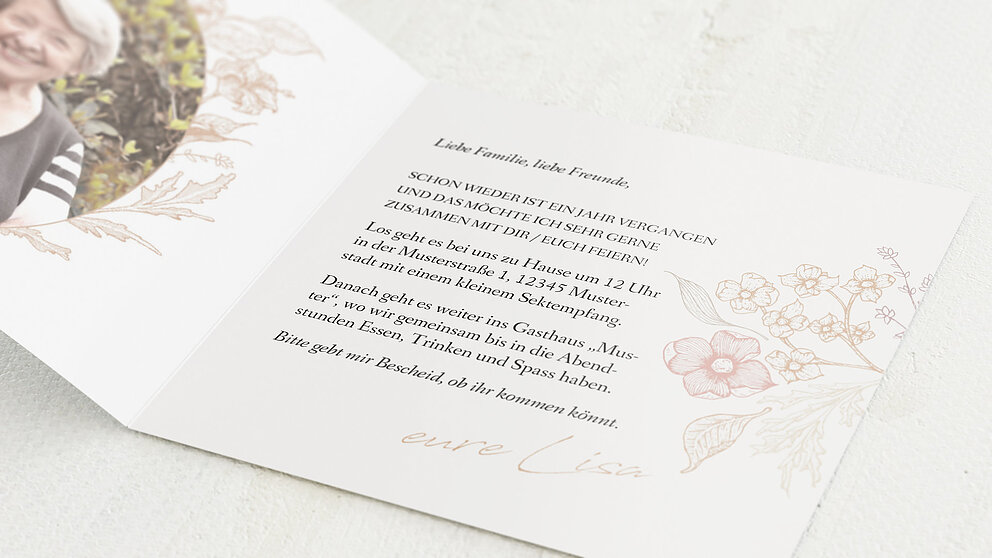 Liebe Familie, liebe Freunde,
SCHON WIEDER IST EIN JAHR VERGANGEN
UND DAS MÖCHTE ICH SEHR GERNE
ZUSAMMEN MIT DIR / EUCH FEIERN!
Los geht es bei uns zu Hause um 12 Uhr
in der Musterstraße 1, 12345 Muster-
stadt mit einem kleinem Sektempfang.
Danach geht es weiter ins Gasthaus „Mus-
ter“, wo wir gemeinsam bis in die Abend-
stunden Essen, Trinken und Spass haben.
Bitte gebt mir Bescheid, ob ihr kommen könnt.
eure Lisa